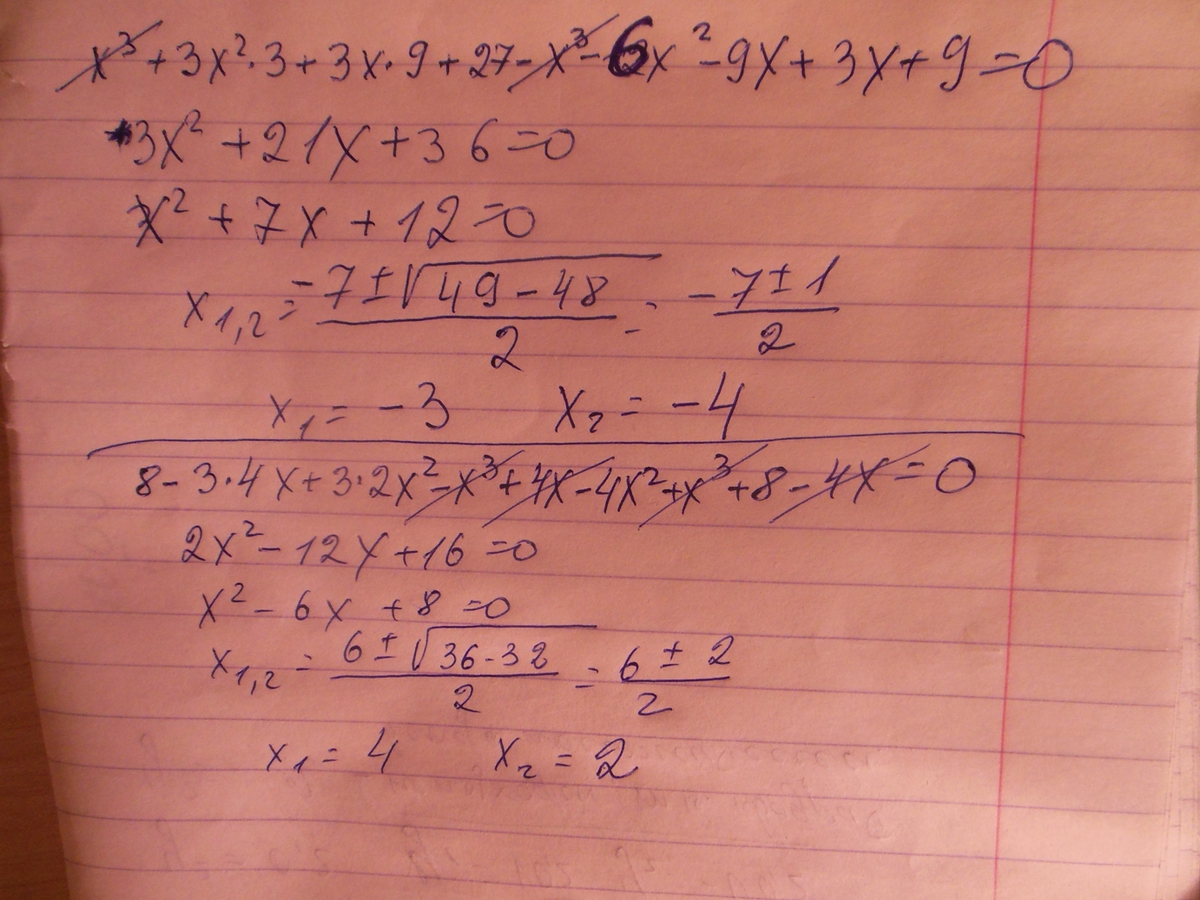 x³ + 3x²·3 + 3x·9 + 27 - x³ - 6x² - 9x + 3x + 9 = 0
3x² + 21x + 36 = 0
x² + 7x + 12 = 0
x₁,₂ = (-7 ± √(49 - 48))/2 = (-7 ± 1)/2
x₁ = -3 x₂ = -4
8 - 3·4x + 3·2x² - x³ + 4x - 4x² + x³ + 8 - 4x = 0
2x² - 12x + 16 = 0
x² - 6x + 8 = 0
x₁,₂ = (6 ± √(36 - 32))/2 = (6 ± 2)/2
x₁ = 4 x₂ = 2